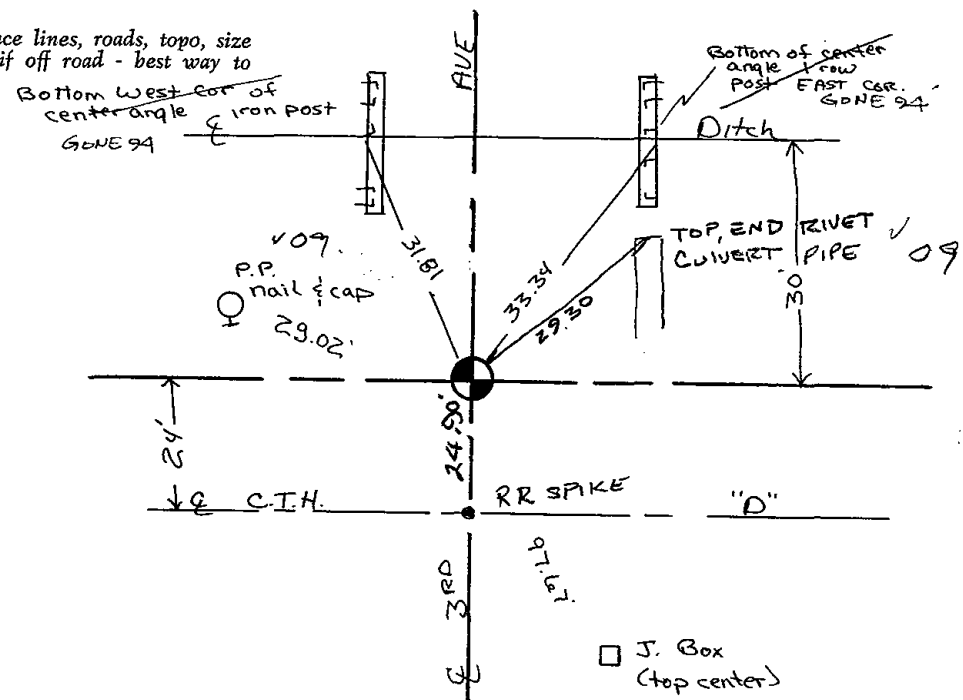 nce lines, roads, topo, size
if off road - best way to
Bottom West Cor of
center angle iron post
℄
GONE 94
AVE
Bottom of center
angle iron
post EAST COR.
GONE 94
Ditch
31.81
33.34
29.30
√09.
P.P.
nail & cap
29.02'
TOP, END RIVET
CULVERT PIPE
√ 09
30'
24'
24.90'
℄ C.T.H. "D"
RR SPIKE
97.67.
℄ 3RD
J. Box
(top center)